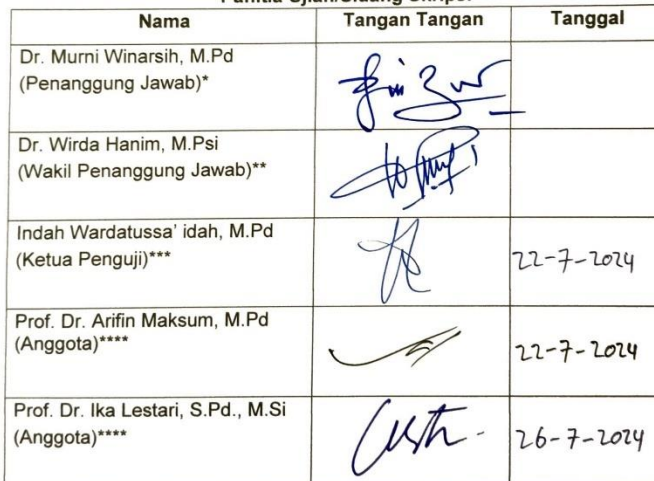 Panitia Ujian/Sidang Skripsi
Nama Tangan Tangan Tanggal
Dr. Murni Winarsih, M.Pd
(Penanggung Jawab)*
Dr. Wirda Hanim, M.Psi
(Wakil Penanggung Jawab)**
Indah Wardatussa' idah, M.Pd
(Ketua Penguji)***
22-7-2024
Prof. Dr. Arifin Maksum, M.Pd
(Anggota)****
22-7-2024
Prof. Dr. Ika Lestari, S.Pd., M.Si
(Anggota)****
26-7-2024